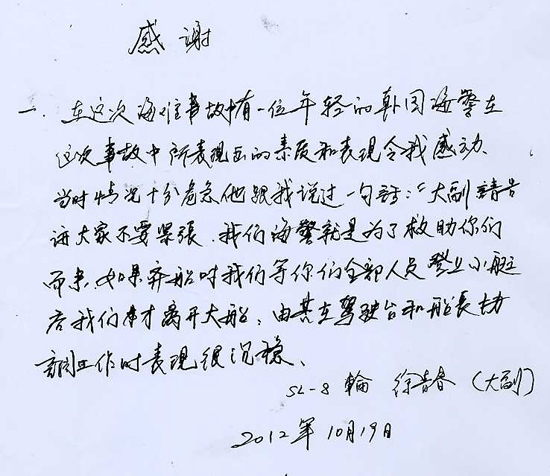 感谢
一. 在这次海难事故中有一位年轻的韩国海警在
这次事故中所表现出的素质和表现令我感动、
当时情况十分危急他跟我说过一句话：“大副請告
诉大家不要紧张、我们海警就是为了救助你们
而来、如果弃船时我们等你们全部人员登上小艇
后我们才离开大船，由其在驾驶台和船長协
調工作时表现很沉稳、
SL-8 輪 徐青春（大副）
2012年10月19日